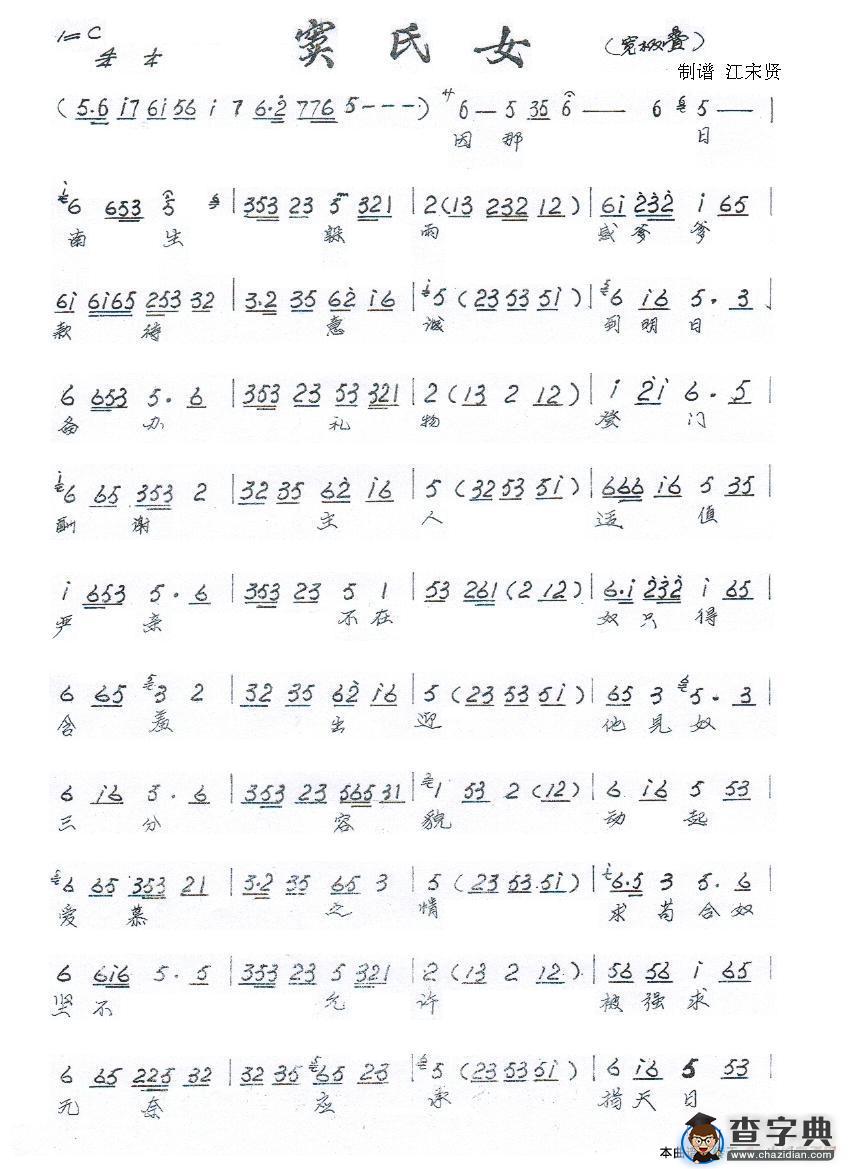 1=C
窦氏女
制谱 江宋贤
(5·6 i7 6i56 i 7 6·2 776 5---) 6— 5 35 6—— 6 5— |
因那 日
6 653 5 | 353 23 5 321 | 2 (13 232 12) | 6i 232 i 65 |
南生 躲 雨 感爹爹
6i 6i65 253 32 | 3·2 35 62 i6 | 5 (23 53 5i) | 6 i6 5·3
款待 意 诚 到明日
6 653 5·6 | 353 23 53 321 | 2 (13 2 12) | i 2i 6·5 |
备办 礼 物 登 门
6 65 353 2 | 32 35 62 i6 | 5 (32 53 5i) | 666 i6 5 35 |
酬谢 主 人 适 值
i 653 5·6 | 353 23 5 1 | 53 261 (2 12) | 6·i 232 i 65 |
严亲 不在 奴只得
6 65 3 2 | 32 35 62 i6 | 5 (23 53 5i) | 65 3 5·3 |
含羞 出 迎 他见奴
6 i6 5·6 | 353 23 565 31 | 1 53 2 (12) | 6 i6 5 53 |
三分 容 貌 动 起
6 65 353 21 | 3·2 35 65 3 | 5 (23 53 5i) | 6·5 3 5·6 |
爱慕 之 情 求苟合奴
6 6i6 5·5 | 353 23 5 321 | 2 (13 2 12) | 56 56 i 65 |
坚不 允 许 被强求
6 65 225 32 | 32 35 65 23 | 5 (23 53 5i) | 6 i6 5 53 |
无奈 应 承 指天日
查字典
www.chazidian.com